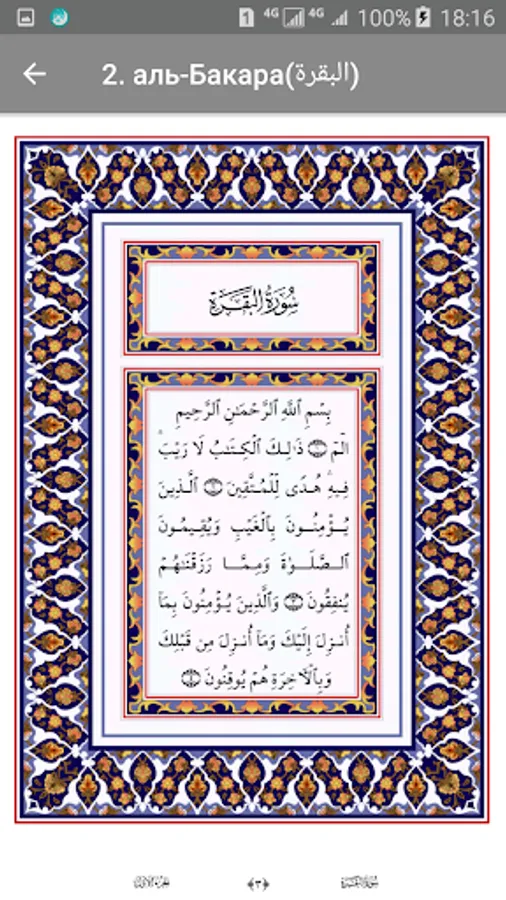 1 4G 4G 100% 18:16
2. аль-Бакара(البقرة)
سُورَةُ البَقَرَةِ
بِسْمِ ٱللَّهِ ٱلرَّحْمَٰنِ ٱلرَّحِيمِ
الٓمٓ ۝١ ذَٰلِكَ ٱلْكِتَٰبُ لَا رَيْبَ ۛ
فِيهِ ۛ هُدًى لِّلْمُتَّقِينَ ۝٢ ٱلَّذِينَ
يُؤْمِنُونَ بِٱلْغَيْبِ وَيُقِيمُونَ
ٱلصَّلَوٰةَ وَمِمَّا رَزَقْنَٰهُمْ
يُنفِقُونَ ۝٣ وَٱلَّذِينَ يُؤْمِنُونَ بِمَآ
أُنزِلَ إِلَيْكَ وَمَآ أُنزِلَ مِن قَبْلِكَ
وَبِٱلْأٓخِرَةِ هُمْ يُوقِنُونَ ۝٤
سُورَةُ البَقَرَةِ ﴿٣﴾ الجزء الأول